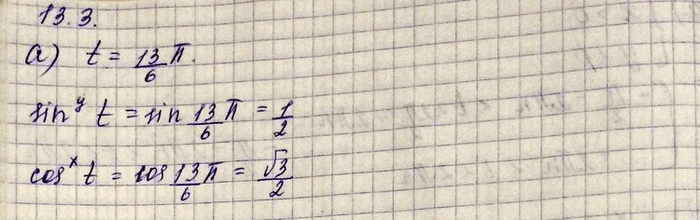 13.3.
а) t = 13/6 π.
sin^y t = sin 13/6 π = 1/2
cos^x t = cos 13/6 π = √3/2